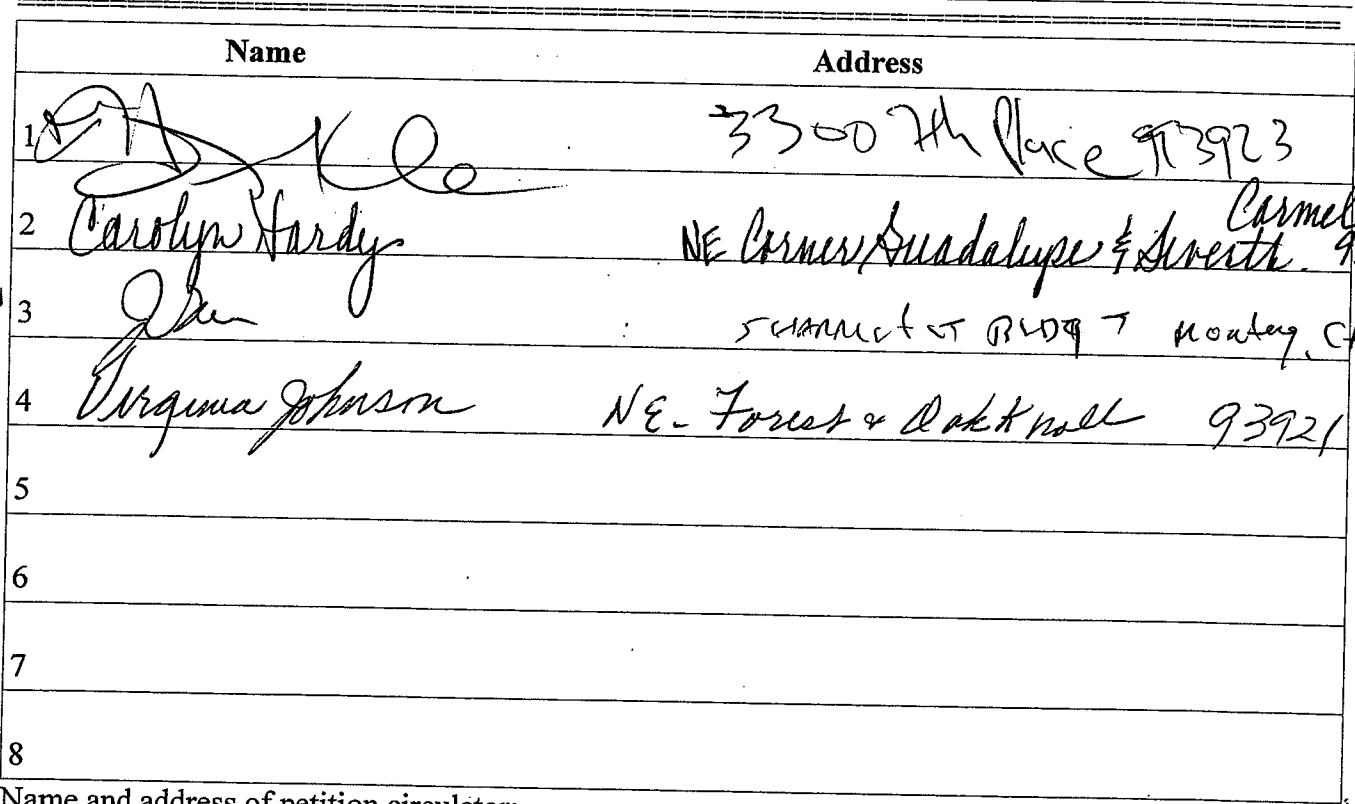 Name Address
1 3300 7th Place 93923
2 Carolyn Hardy NE Corner Guadalupe & Seventh. Carmel 9
3 BLDG
4 Virginia Johnson NE - Forest & Oak Knoll 93921
5
6
7
8
Name and address of petition circulator: